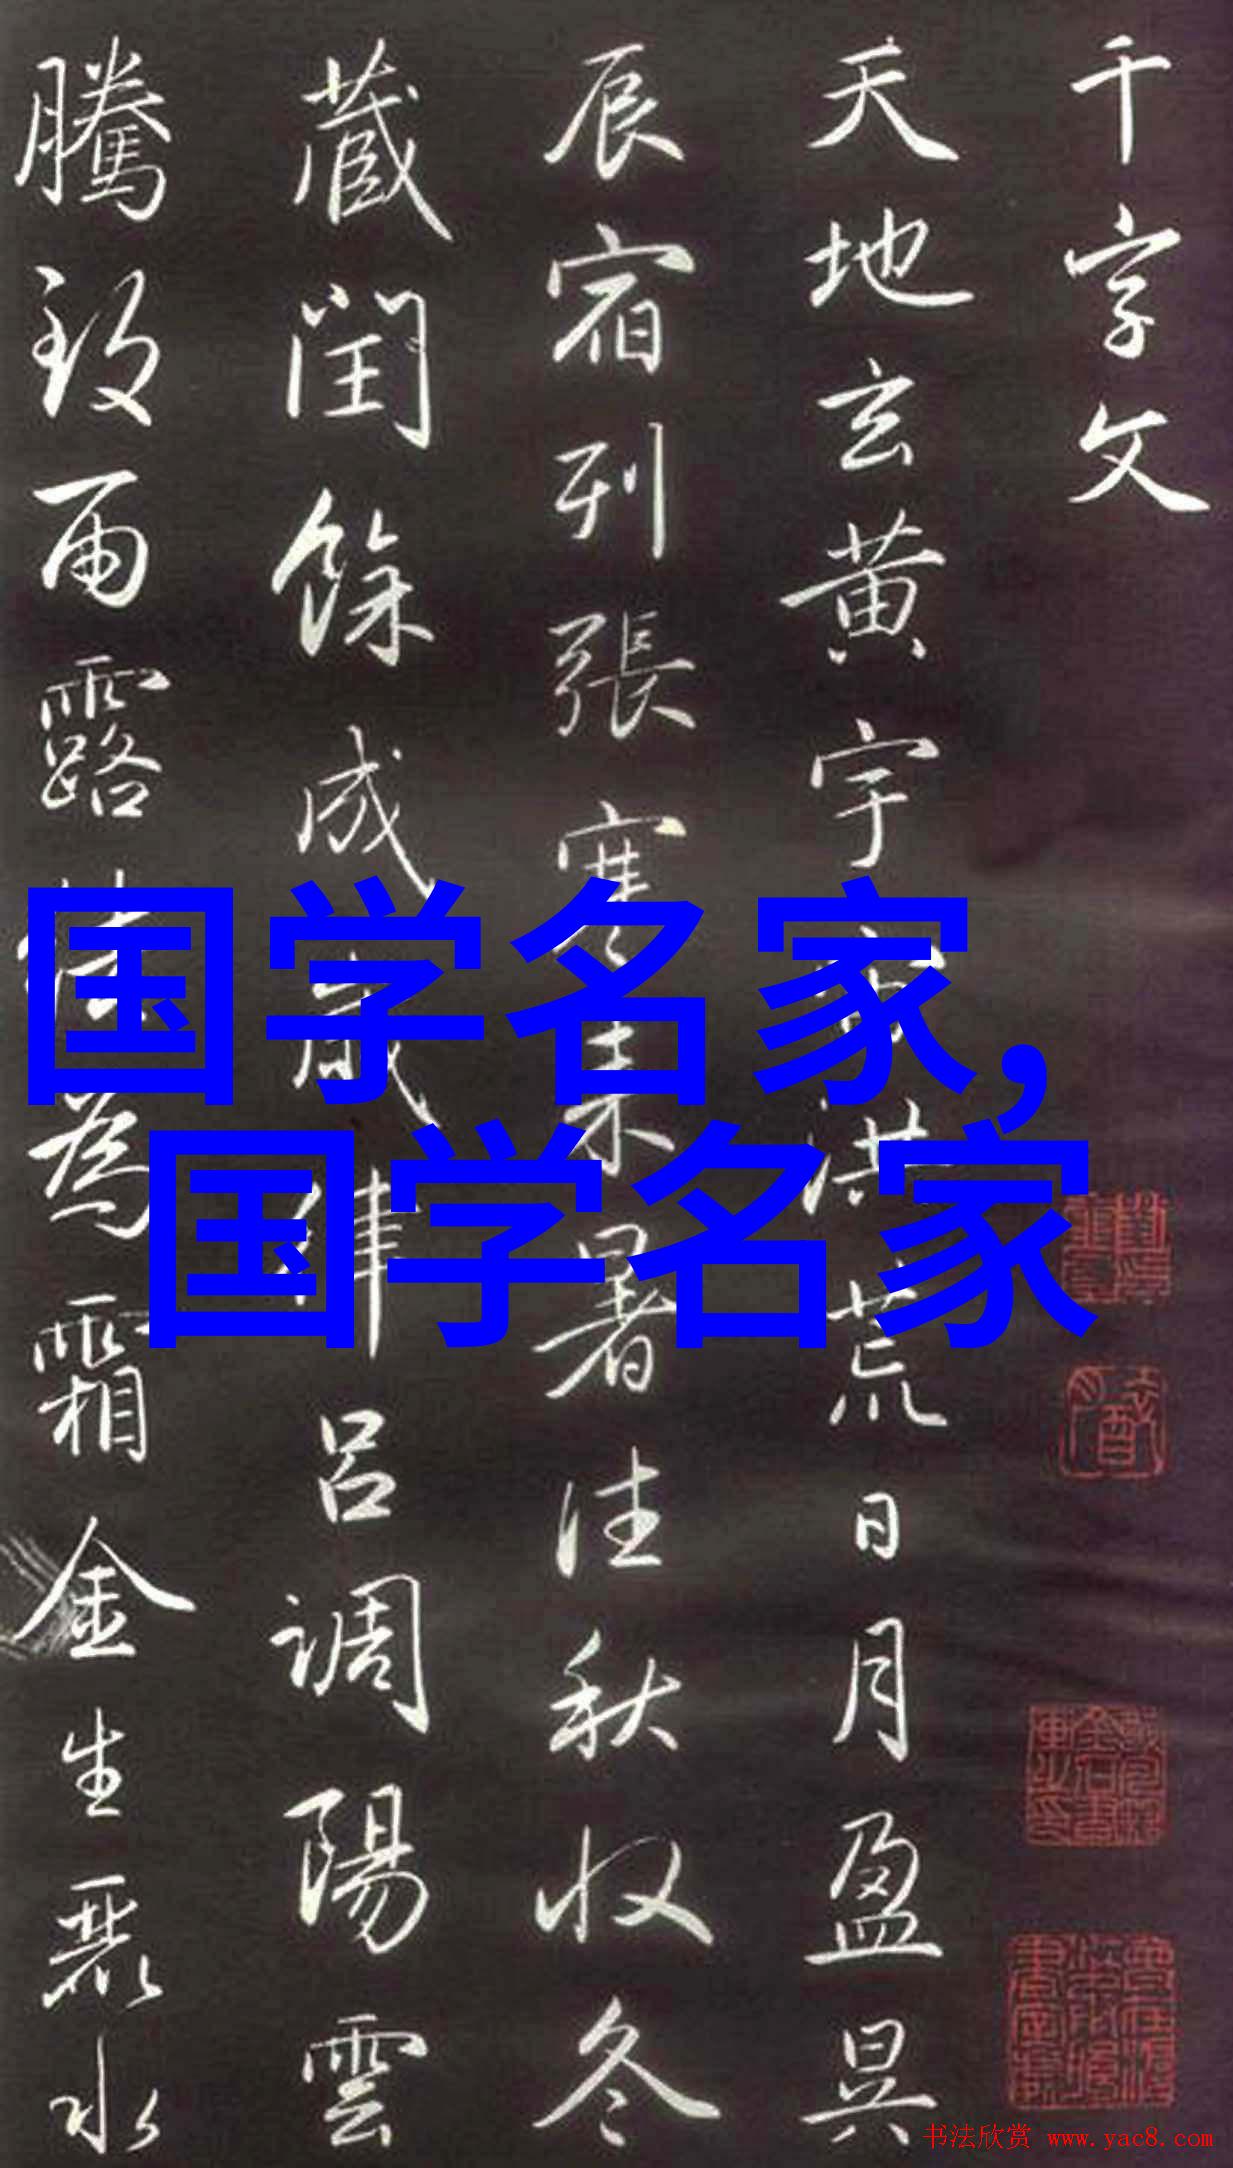 千字文
天地玄黄宇宙洪荒日月盈昃
辰宿列張寒来暑往秋收冬
藏閏餘成歲律吕調陽雲
騰致雨露結為霜金生麗水
国学名家,
国学名家
书法欣赏 www.yac8.com